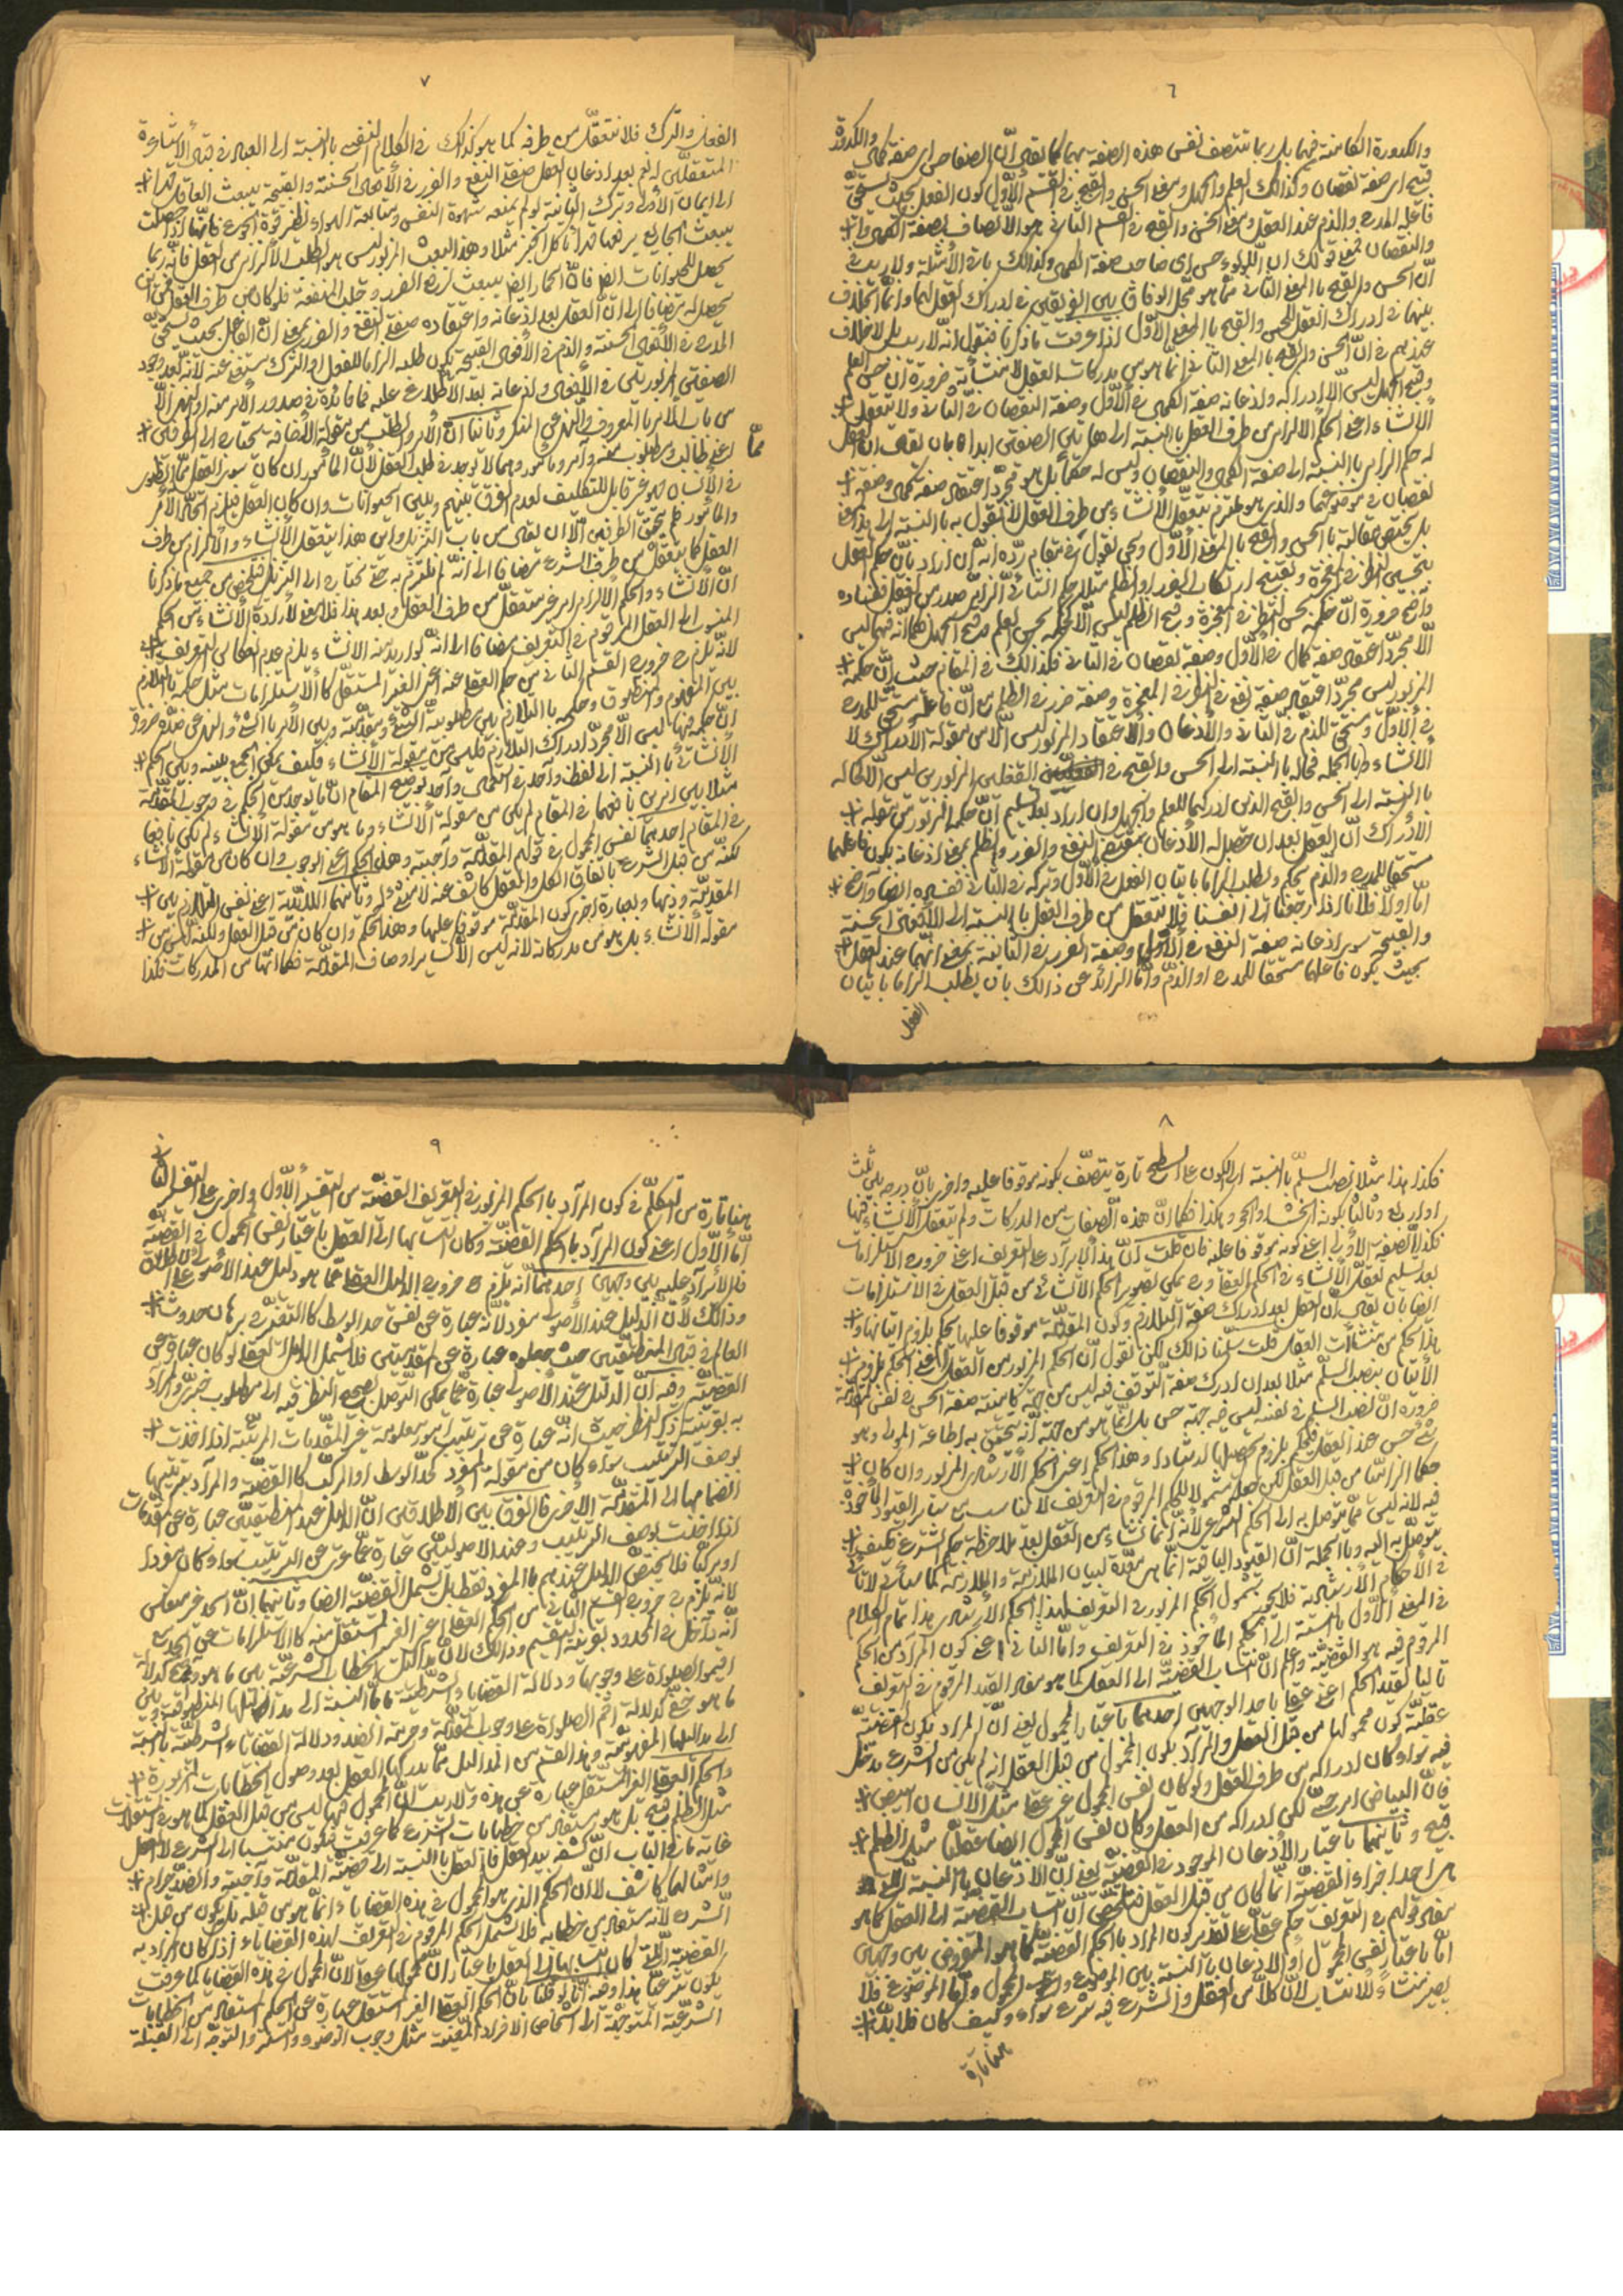 ٦
والكدورة الكامنة فيهما بل ربما تتصف نفس هذه الصفة بهما كما يقال انّ الصفا حسن اى صفة كمال والكدورة
قبيح اى صفة نقصان وكذلك العلم والجهل ومعنى الحسن والقبح فى القسم الأوّل كون الفعل بحيث يستحقّ
فاعله المدح والذم عند العقل ومعنى الحسن والقبح فى القسم الثانى هو الاتصاف بصفة الكمال
والنقصان فمعنى قولك ان اللؤلؤ حسن اى صاحب صفة الكمال وكذلك باقى الأمثلة ولا ريب فى
أنّ الحسن والقبح بالمعنى الثانى ممّا هو محلّ الوفاق بين الفريقين فى ادراك العقل لهما وانّما الخلاف
بينهما فى ادراك العقل للحسن والقبح بالمعنى الأوّل اذا عرفت ما ذكرنا فنقول انّه لا ريب بل لا خلاف
عندهم فى انّ الحسن والقبح بالمعنى الثانى انّما هو من مدركات العقل لا منشأته ضرورة ان حسن العلم
وقبح الجهل ليس الّا ادراكه واذعانه صفة الكمال فى الأوّل وصفة النقصان فى الثانى ولا يتعقل
الأنشاء اعنى الحكم الالزامى من طرف العقل بالنسبة الى هاتين الصفتين ابدا بان يقال ان العقل
له حكم الزامى بالنسبة الى صفة الكمال والنقصان وليس له حقّا بل هو مجرّد اعتقاد صفة كمال وصفة
نقصان فى موضوعهما والذى هو ملتزم بتعقّل الأنشاء من طرف العقل لا يقول به بالنسبة الى هذا المعنى
بل يختصّ مقالته بالحسن والقبح بالمعنى الأوّل ونحن نقول فى مقام ردّه انّه ان اراد بانّ حكم العقل
بتحسين النظر فى المعجزة وتقبيح ارتكاب الفجور والظلم مثلا حكم انشائى الزامىّ صدر من العقل ففساده
واضح ضرورة انّ حكمه بحسن النظر فى المعجزة وقبح الظلم ليس الّا كحكمه بحسن العلم وقبح الجهل فكما انّه فيهما ليس
الّا مجرّد اعتقاد صفة كمال فى الأوّل وصفة نقصان فى الثانى فكذلك فى المقام حيث انّ حكمه
المزبور ليس مجرّد اعتقاد صفة نفع فى النظر فى المعجزة وصفة ضرر فى الظلم مع انّ فاعله مستحق للمدح
فى الأوّل ومستحق للذمّ فى الثانى والأذعان والاعتقاد المزبور ليس الّا من مقولة الادراك لا
الأنشاء وبالجملة فحاله بالنسبة الى الحسن والقبح فى الفعلين المزبورين ليس الّا كحاله
بالنسبة الى الحسن والقبح الذين ادركهما للعلم والجهل وان اراد بعد تسليم انّ حكمه المزبور من مقولة
الأدراك انّ العقل بعد ان حصل له الأذعان بصفتى النفع والضرر والظلم بمعنى اذعانه بكون فاعلهما
مستحقا للمدح والذم يحكم ويطلب الزاما باتيان الفعل فى الأوّل وتركه فى الثانى ففيه ايضا واضح
امّا اوّلا فلأنّا اذا رجعنا الى انفسنا فلا يتعقل من طرف العقل بالنسبة الى الأفعال الحسنة
والقبيحة سوى اذعانه صفة النفع فى الأوّل وصفة الضرر فى الثانية بمعنى انّهما عند العقل
بحيث يكون فاعلهما مستحقا للمدح او الذمّ وامّا الزائد عن ذلك بان يطلب الزاما باتيان
الفعل
٧
الفعل والترك فلا نتعقّل من طرفه كما هو كذلك فى الكلام النفسى بالنسبة الى العبد فى قبال الأشاعرة
المتعقلين له نعم بعد اذعان العقل صفة النفع والضرر فى الأفعال الحسنة والقبيحة يبعث العاقل قهرا
الى ايمان الأولى وترك الثانية لو لم يمنعه شهوة النفس ومتابعة الهواء نظير قوة الجوع فانّها اذا حصلت
يبعث الجايع قهرا الى اكل الخبز مثلا وهذا البعث المزبور ليس هو الطلب الألزامى من العقل فانّه ربما
يحصل للحيوانات ايضا فانّ الحمار ايضا يبعث لدفع الضرر وجلب المنفعة فلو كان من طرف العقل فمن اين
يحصل له مضافا الى انّ العقل بعد اذعانه واعتقاده صفتى النفع والضرر بمعنى انّ الفاعل بحيث يستحقّ
المدح فى الأفعال الحسنة والذم فى الأفعال القبيحة يكون طلبه الزاما للفعل او الترك مستغنى عنه لأنّه بعد وجود
الصفتين المزبورتين فى الأفعال واذعانه بعد الاطلاع عليه فما فائدة فى صدور الأمر منه او النهى الّا
من باب الأمر بالمعروف والنهى عن المنكر وثانيا انّ الأمر والطلب من مقولة الأضافة يحتاج الى طرفين
اعنى طالب ومطلوب منه وآمر ومأمور وهما لا توجد فى طلب العقل لأنّ المأمور ان كان سوى العقل ممّا يتطور
ممّا
فى الأنسان فهو غير قابل للتكليف لعدم الفرق بينهم وبين الحيوانات وان كان العقل فيلزم اتحاد الأمر
والمأمور فلم يتحقّق الطرفين الّا ان يقال من باب التنزيل واين هذا ليتعقل الأنشاء والألزام من طرف
العقل كما يتعقل من طرف الشرع مضافا الى انّه لم يلتزم به حتى نحتاج الى التنزيل فتلخّص من جميع ما ذكرنا
انّ الأنشاء والحكم الالزامى غير متعقّل من طرف العقل وبعد هذا فلا معنى لأرادة الأنشاء من الحكم
المنسوب الى العقل المرقوم فى التعريف مضافا الى انّه لو اريد منه الانشاء يلزم عدم انعكاس التعريف
لأنّه يلزم ح خروج القسم الثانى من حكم العقل عنه اعنى الغير المستقلّ كالاستلزامات مثل حكمه بالتلازم
بين المفهوم والمنطوق وحكمه بالتلازم بين مطلوبيّة الشئ ومقدّمته وبين الأمر بالشئ والنهى عن ضدّه ضرورة
انّ حكمه فيها ليس الّا مجرّد ادراك التلازم فليس من مقولة الأنشاء فكيف يمكن الجمع بينه وبين الحكم
الأنشائى بالنسبة الى لفظ واحد فى استعمال واحد توضيح المقام انّ ما يوجد من الحكم فى وجوب المقدّمة
مثلا بين امرين بانّهما فى المقام لم يكن من مقولة الأنشاء وما هو من مقولة الأنشاء لم يكن ما فيها
فى المقام احدهما نفس المحمول فى قولهم المقدّمة واجبة وهذا الحكم اعنى الوجوب وان كان من مقولة الأنشاء
لكنّه من قبل الشرع باتفاق الكلّ والعقل كاشف عنه لا منشئ له وثانيهما الملازمة اعنى نفس التلازم بين
المقدمة وذيها وبعبارة اخرى كون المقدّمة موقوفا عليها وهذا الحكم وان كان من قبل العقل ولكنّه ليس من
مقولة الأنشاء بل هو من مدركاته لأنّه ليس الّا كساير اوصاف المقدّمة فكما انّها من المدركات فكذا
٨
فكذا هذا مثلا نصب السلّم بالنسبة الى الكون على السطح تارة يتّصف بكونه موقوفا عليه واخرى بانّ درجه ثلث
او اربع وثالثا بكونه الخشب والحجر وهكذا فكما انّ هذه الصفات من المدركات ولم يتعقل الأنشاء فيها
فكذا الصفة الأولى اعنى كونه موقوفا عليه فان قلت انّ هذا الايراد على التعريف اعنى خروج الاستلزامات
بعد تسليم تعقّل الأنشاء فى الحكم العقلى وح يمكن تصوير الحكم الأنشائى من قبل العقل فى الاستلزامات
ايضا بان يقال انّ العقل بعد ادراك صفة التلازم وكون المقدّمة موقوفا عليها يحكم بلزوم اتيانها و
هذا الحكم من منشئات العقل قلت سلّمنا ذلك لكن نقول انّ الحكم المزبور من العقل اعنى الحكم بلزوم
الأتيان بنصب السلّم مثلا بعد ان ادرك صفة التوقف فيه ليس من جهة كامنة صفة الحسن فى نفس المقدّمة
ضرورة انّ نصب السلم فى نفسه ليس فيه جهة حسن بل انّما هو من جهة انّه يتحقق به اطاعة المولى وهو
شئ حسن عند العقل فيحكم بلزوم تحصيلها ارشادا وهذا الحكم اعنى الحكم الأرشادى المزبور وان كان
حكما الزاميّا من قبل العقل لكن جعله مشمولا للحكم المرقوم فى التعريف لا يناسب مع ساير القيود المأخوذة
فيه لأنّه ليس ممّا يتوصل به الى الحكم الشرعى لأنّه انّما نشاء من العقل بعد ملاحظة حكم الشرع فكيف
يتوصّل به اليه وبالجملة انّ القيود الباقية انّما هى مقيّدة لبيان الملازمة والملازمة كما سيأتى لا تأتى
فى الأحكام الأرشادية فلا يجوز شمول الحكم المزبور فى التعريف لهذا الحكم الارشادى هذا تمام الكلام
فى المعنى الأوّل بالنسبة الى الحكم المأخوذ فى التعريف وامّا الثانى اعنى كون المراد من الحكم
المرقوم فيه هو القضيّة واعلم انّ انتساب القضيّة الى العقل كما هو مفاد القيد المرقوم فى التعريف
تاليا لقيد الحكم اعنى عقلى باحد الوجهين احدهما باعتبار المحمول يعنى انّ المراد بكون القضيّة
عقليّة كون محمولها من قبل العقل والمراد بكون المحمول من قبل العقل انّه لم يكن من الشرع مدخل
فيه سواء كان ادراكه من طرف العقل ولو كان نفس المحمول غير عقلى مثل الانسان ابيض
فانّ البياض امر حسىّ لكن ادراكه من العقل وكان نفس المحمول ايضا عقليّا مثل الظلم
قبيح وثانيهما باعتبار الأذعان الموجود فى القضيّة يعنى انّ الاذعان بالنسبة التى
هى احد اجزاء القضيّة انّما كان من قبل العقل فتلخّص انّ انتساب القضية الى العقل كما هو
مفاد قولهم فى التعريف حكم عقلىّ على تقدير كون المراد بالحكم القضيّة كما هو المفروض بين وجهين
امّا باعتبار نفس المحمول او الاذعان بالنسبة بين الموضوع والمحمول وامّا الموضوع فلا
يصير منشاءً للأنتساب لأنّ كلّا من العقل والشرع فيه شرع سواء وكيف كان فلا بدّ
هنا تارة
٩
هنا تارة من التكلّم فى كون المراد بالحكم المزبور فى التعريف القضيّة من التفسير الأوّل واخرى على التفسير الثانى
امّا الأوّل اعنى كون المراد بالحكم القضيّة وكان انتسابها الى العقل باعتبار نفس المحمول فى القضيّة
فالأيراد عليه من وجهين احدهما انّه يلزم ح خروج الدليل العقلى عمّا هو دليل عند الأصولى على الاطلاق
وذلك لأنّ الدليل عند الأصولى مفرد لأنّه عبارة عن نفس حدّ الوسط كالتغيّر فى برهان حدوث
العالم فى قبال المنطقيّين حيث جعلوه عبارة عن المقدّمتين فلا يشمل الدليل العقلى لو كان عبارة عن
القضيّة وفيه انّ الدليل عند الأصولى عبارة عمّا يمكن التوصل بصحيح النظر فيه الى مطلوب خبرىّ والمراد
به بقرينة ذكر النظر حيث انّه عبارة عن ترتيب امور معلومة غير المقدّمات المرتّبة اذا اخذت
بوصف الترتيب سواء كان من مقولة المفرد كحدّ الوسط او المركّب كالقضيّة والمراد بترتيبها
انضمامها الى المقدّمة الأخرى فالفرق بين الأطلاقين انّ الدليل عند المنطقيّين عبارة عن المقدّمات
اذا اخذت بوصف الترتيب وعند الاصوليّين عبارة عمّا عرى عن الترتيب سواء كان مفردا
او مركّبا فلا يختصّ الدليل عندهم بالمفرد فقط بل يشمل القضيّة ايضا وثانيهما انّ الحدّ غير منعكس
لأنّه يلزم ح خروج القسم الثانى من الحكم العقلى اعنى الغير المستقلّ منه كالاستلزامات عن الحدّ مع
انّه داخل فى المحدود بقرينة التقسيم وذلك لأنّ مداليل الخطابات الشرعيّة بين ما هو واضح كدلالة
اقيموا الصلوة على وجوبها ودلالة القضايا الشرطيّة بالنسبة الى مداليلها المنطوقة وبين
ما هو خفىّ كدلالة اقم الصلوة على وجوب مقدّمته وحرمة الضدّ ودلالة القضاياء الشرطيّة بالنسبة
الى مداليلها المفهوميّة وهذا القسم من المداليل ممّا يدركها العقل بعد وصول الخطابات المزبورة
والحكم العقلى الغير المستقلّ عبارة عن هذه ولا ريب انّ المحمول فيها ليس من قبل العقل كما هو فى المستقلات
مثل الظلم قبيح بل هو مستفاد من خطابات الشرع كما عرفت فيكون منتسبا الى الشرع لا العقل
غاية ما فى الباب انّ كشفه بيد العقل فانّ العقل بالنسبة الى قضيّة المقدّمة واجبة والضدّ حرام
وامثالهما كاشف لأنّ الحكم الذى هو المحمول فى هذه القضاياء انّما هو من قبله بل يكون من قبل
الشرع لأنّه مستفاد من خطابه فلا يشمل الحكم المرقوم فى التعريف لهذه القضاياء اذا كان المراد به
القضيّة الّتى كان انتسابها الى العقل باعتبار انّ محمولها عقلى لأنّ المحمول فى هذه القضايا كما عرفت
يكون شرعيّا هذا وفيه انّا لو قلنا بانّ الحكم العقلى الغير المستقلّ عبارة عن الحكم المستفاد من الخطابات
الشرعيّة المتوجّهة الى اشخاص الافراد المعيّنة مثل وجوب الوضوء والستر والتوجّه الى القبلة